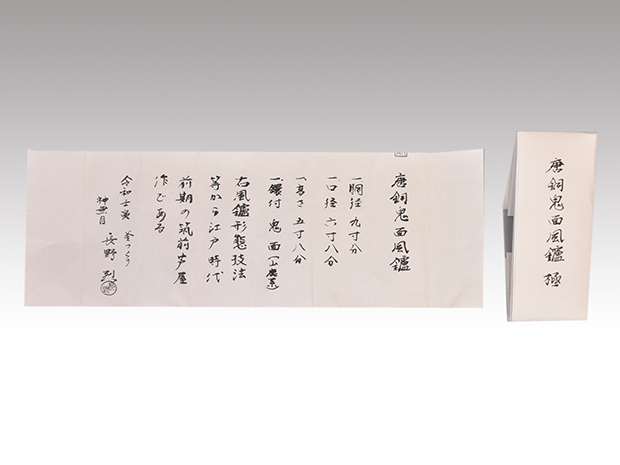 唐銅鬼面風鑪
一胴径 九寸分
一口径 六寸八分
一高さ 五寸八分
一鐶付 鬼面(山鹿系)
右風鑪形態技法
等から江戸時代
前期の筑前芦屋
作である
令和壬寅 釜つくり
神無月 長野烈
唐銅鬼面風鑪 極